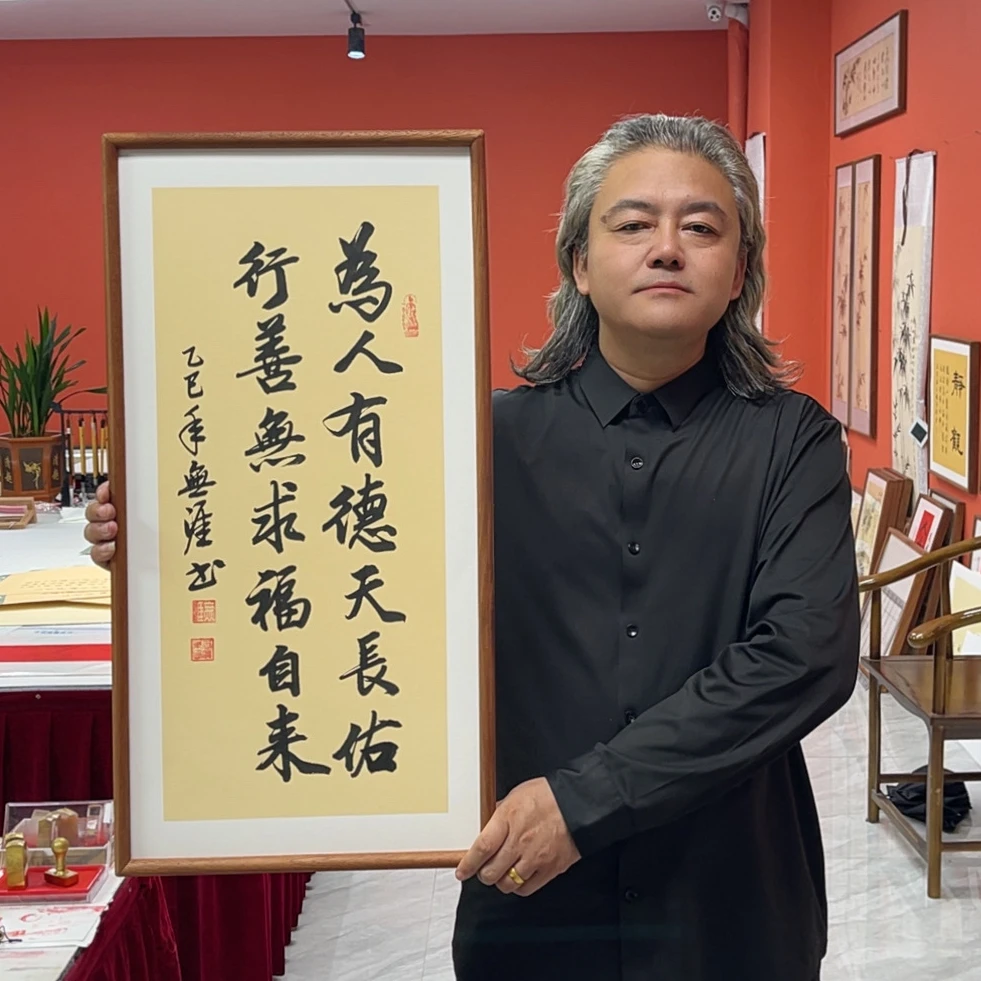 為人有德天長佑
行善無求福自来
乙巳年無涯书
靜觀